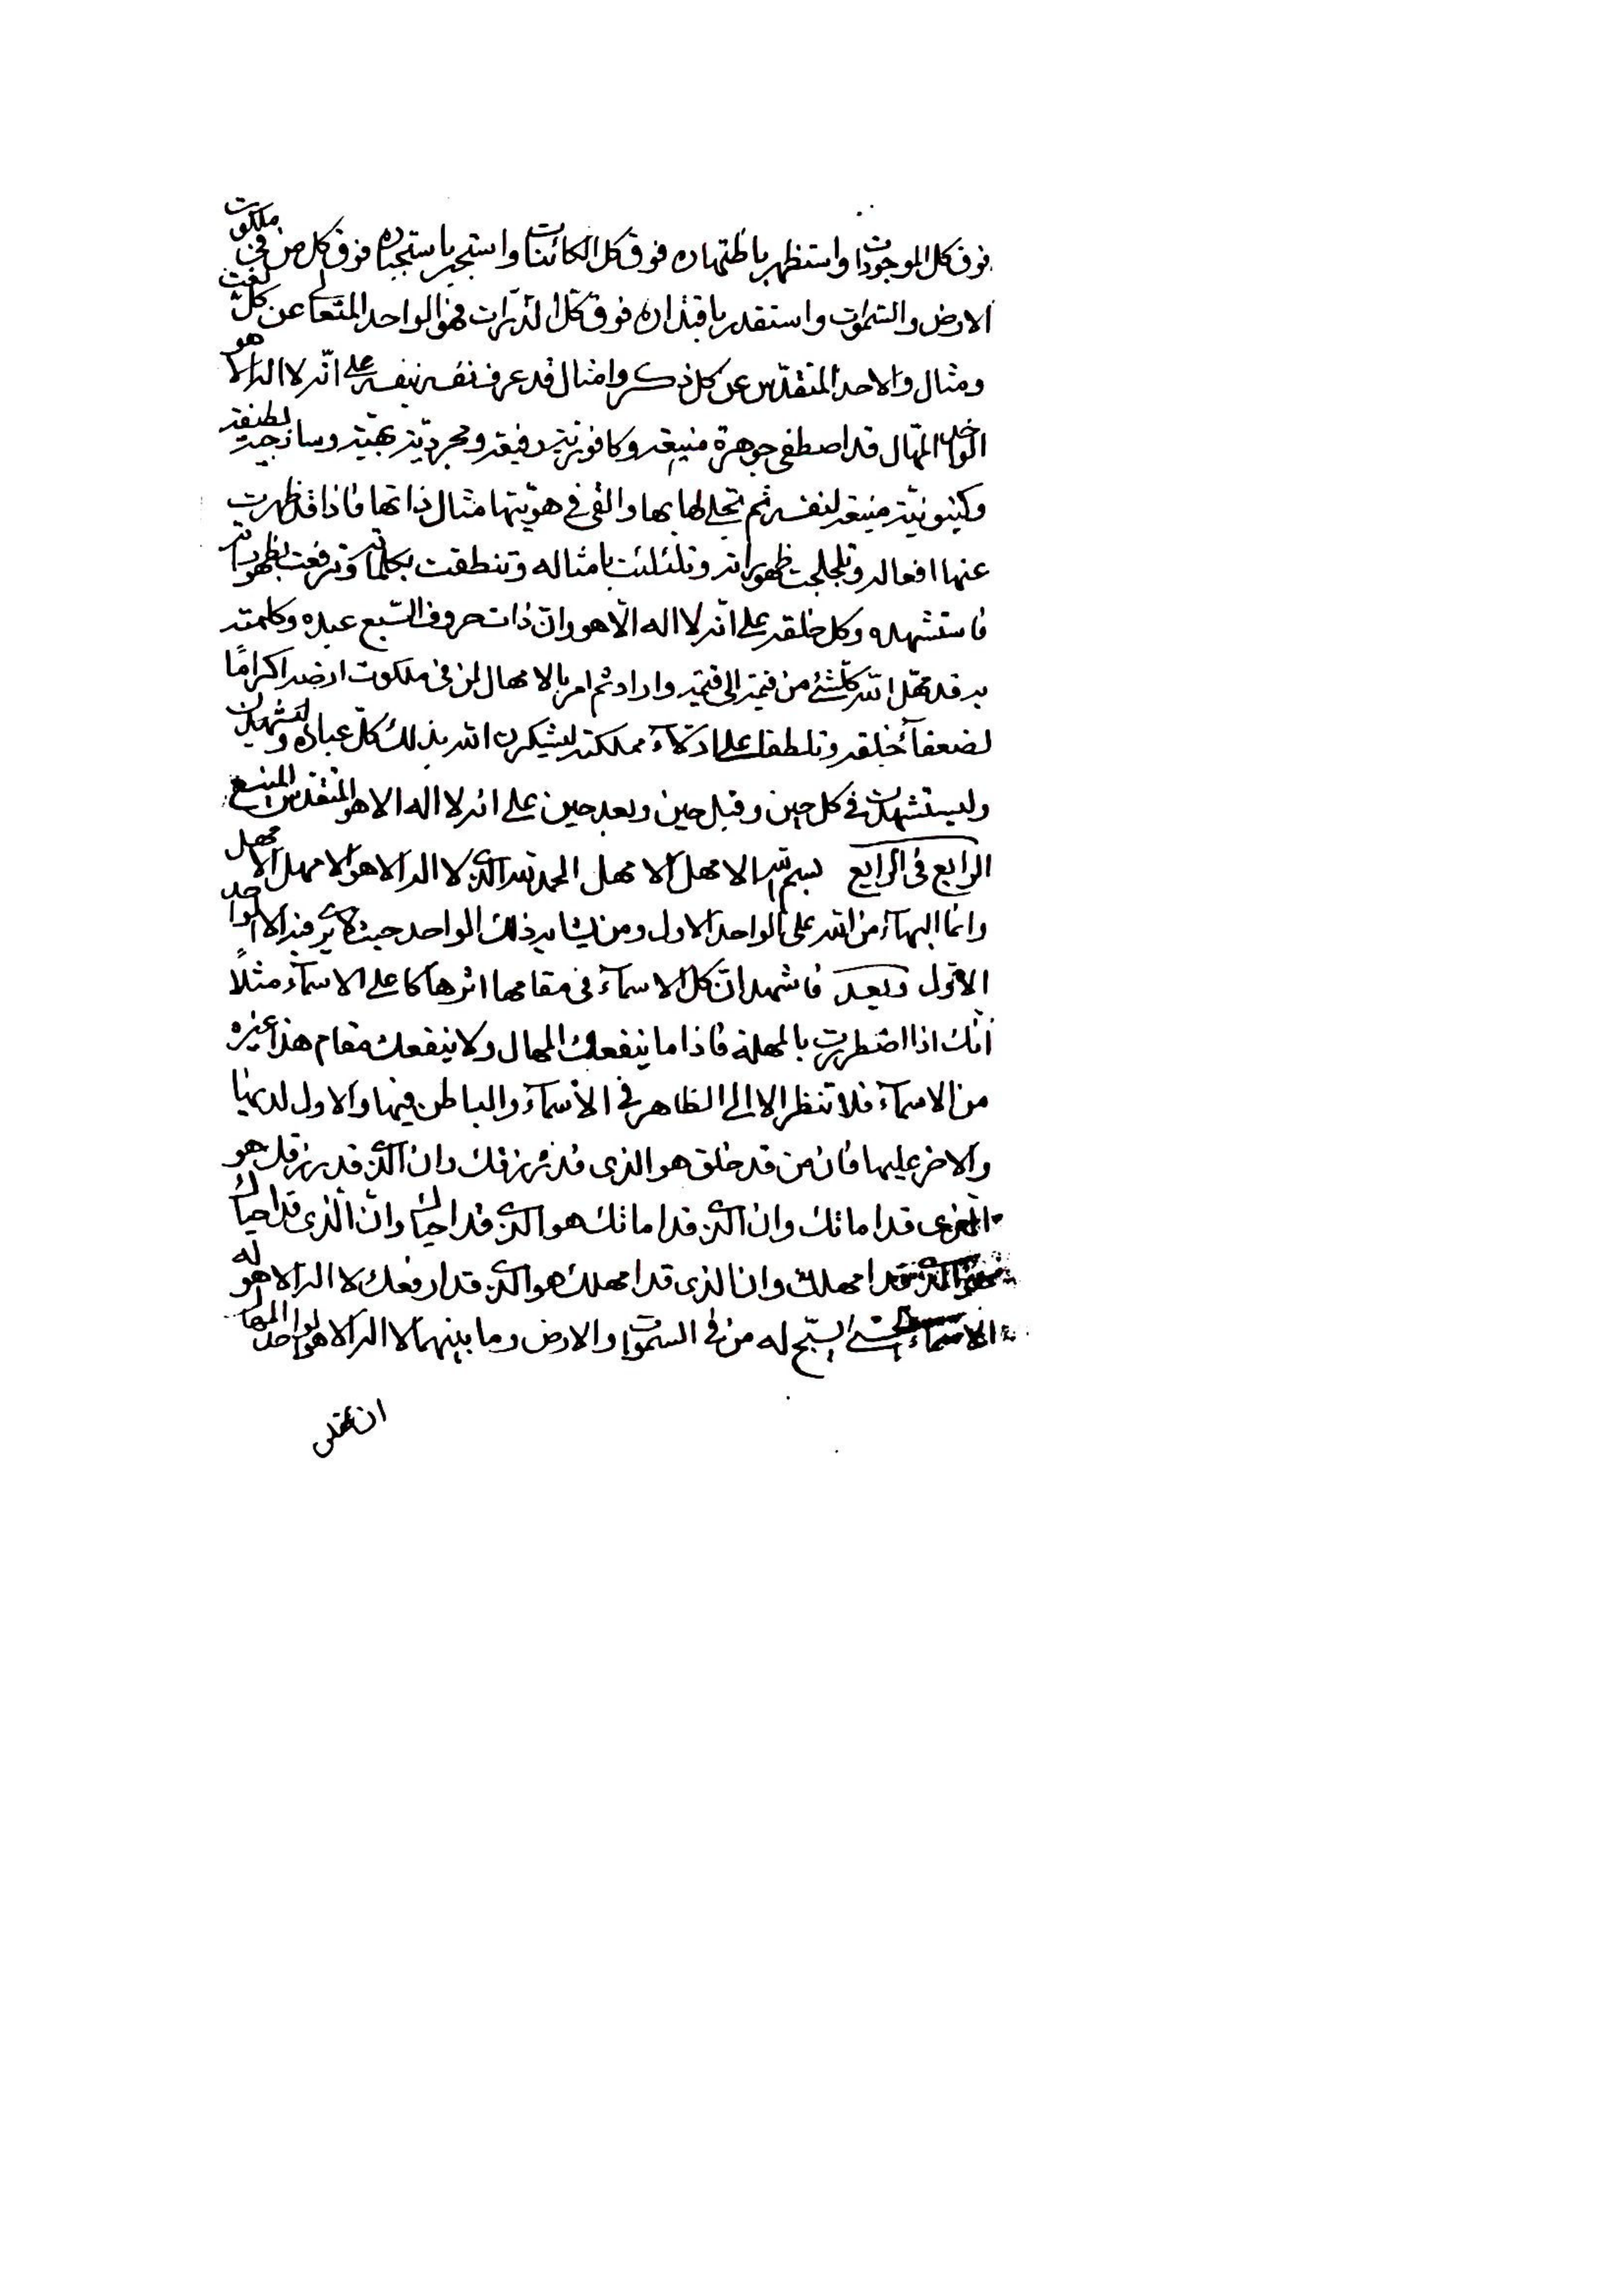 فوق كل الموجودات واستظهر باظتهاره فوق كل الكائنات واستجبر باستجباره فوق كل من في ملكوت
الارض والسموات واستقدر باقتداره فوق كل الذرات فهو الواحد المتعالي عن كل نعت
ومثال والاحد المتقدس عن كل ذكر وامثال قد عرف نفسه نفسه على انه لا اله الا هو
الواحد المهال قد اصطفى جوهرة منيعة وكافورية رفيعة ومجردية بهية وساذجية لطيفة
وكينونية منيعة لنفسه ثم تجلى لها بها والقى في هويتها مثال ذاتها فاذا قد ظهرت
عنها افعاله وتلجلجت ظهوراته وتلئلئت بامثاله وتنطقت بكلماته وترفعت بظهوراته
فاستشهده وكل خلقه على انه لا اله الا هو وان ذات حروف السبع عبده وكلمته
به قد مهل الله كلشئ من قيمة الى قيمة واراد ثم امر بالامهال لمن في ملكوت ارضه اكراما
لضعفآء خلقه وتلطفا على ادلآء مملكته ليشكرن الله بذلك كل عباده وليشهدن
وليستشهدن في كل حين وقبل حين وبعد حين على انه لا اله الا هو المتقدس المنيع
الرابع في الرابع بسم الله الامهل الامهل الحمد لله الذي لا اله الا هو الامهل الامهل
وانما البهآء من الله على الواحد الاول ومن يشابه ذلك الواحد حيث لا يرى فيه الا الواحد
الاول وبعد فاشهد ان كل الاسمآء في مقامها اثرها كاعلى الاسمآء مثلا
انك اذا اضطررت بالمهلة فاذا ما ينفعك المهال ولا ينفعك مقام هذا غيره
من الاسمآء فلا تنظر الا الى الظاهر في الاسمآء والباطن فيها والاول لديها
والاخر عليها فان من قد خلق هو الذي قد رزقك وان الذي قد رزقك هو
الذي قد اماتك وان الذي قد اماتك هو الذي قد احياك وان الذي قد احياك
هو الذي قد امهلك وان الذي قد امهلك هو الذي قد ارفعك لا اله الا هو له
الاسمآء الحسنى يسبح له من في السموات والارض وما بينهما لا اله الا هو الواحد المهال